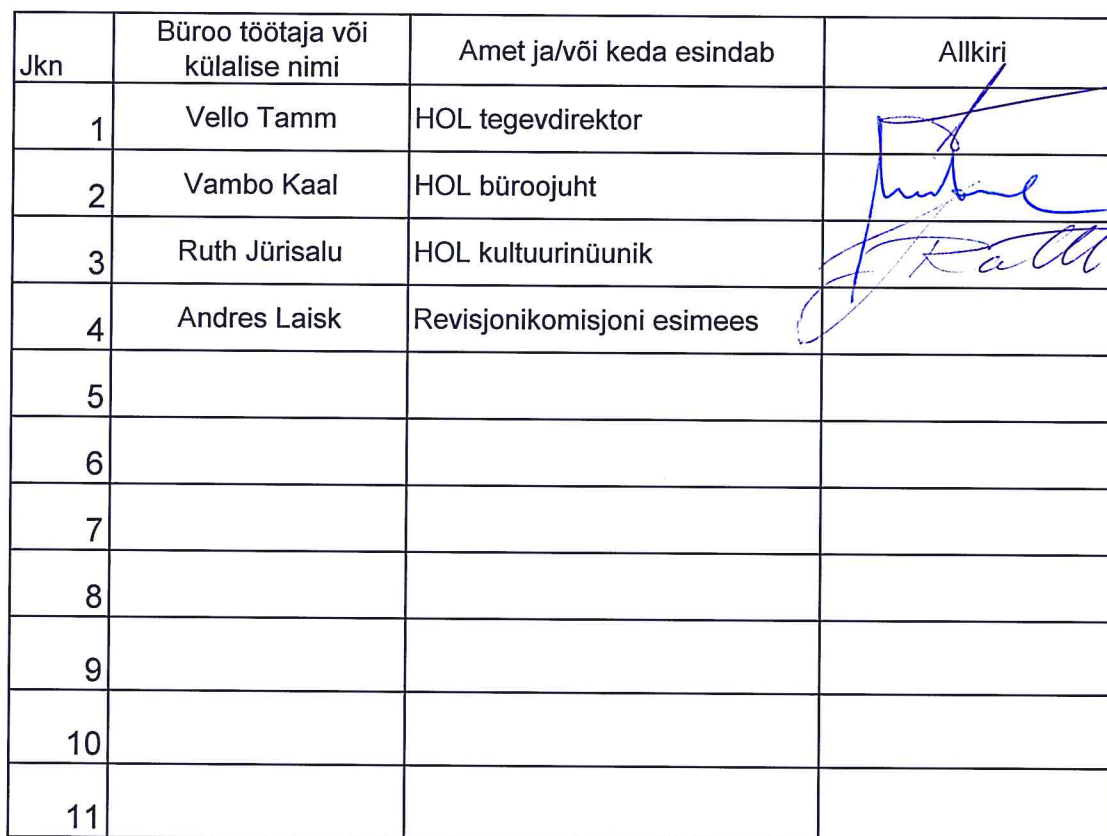 Jkn Büroo töötaja või külalise nimi Amet ja/või keda esindab Allkiri
1 Vello Tamm HOL tegevdirektor
2 Vambo Kaal HOL büroojuht
3 Ruth Jürisalu HOL kultuurinüunik
4 Andres Laisk Revisjonikomisjoni esimees
5
6
7
8
9
10
11